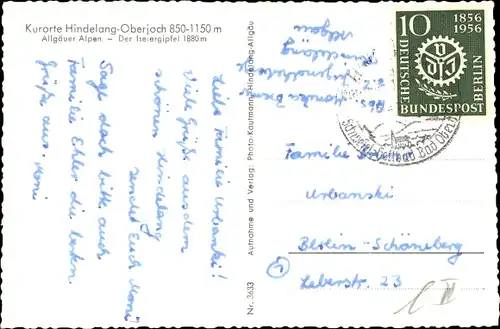 Kurorte Hindelang-Oberjoch 850-1150 m
Allgäuer Alpen - Der Iselergipfel 1880 m
Liebe Familie Urbanski!
Viele Grüße aus dem
schönen Hindelang
sendet Euch Moni
Sage doch bitte auch
Familie Ehler die besten
Grüße aus. Moni
Nr. 3633
Aufnahme und Verlag: Photo-Kaufmann, Hindelang-Allgäu
Hindelang
Allgäu
10
1856
1956
DEUTSCHE
BUNDESPOST
BERLIN
VDI
Schwefel Bad Oberd
Familie
Urbanski
Berlin-Schöneberg
Leberstr. 23
II